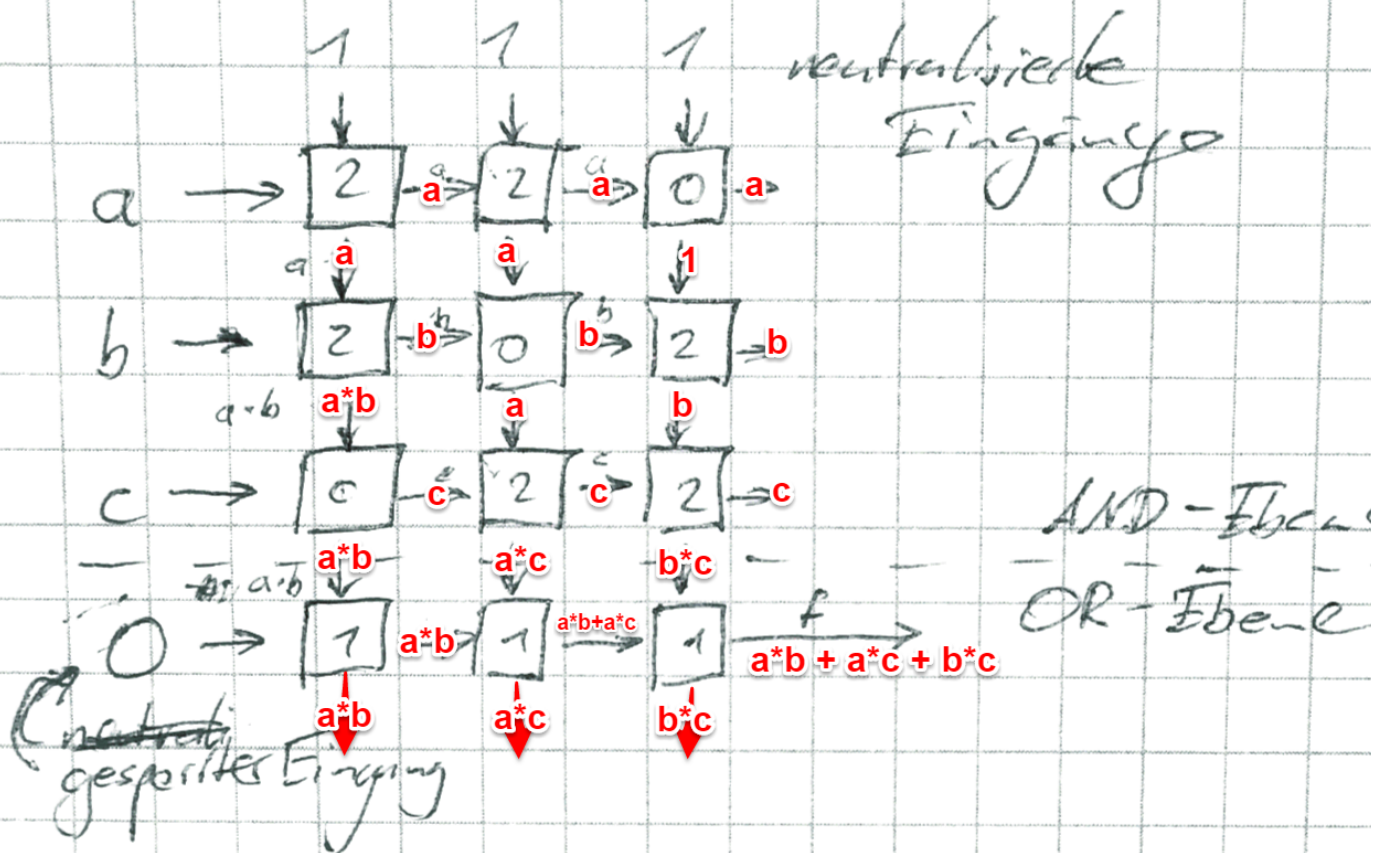 1 1 1 neutralisierte
Eingänge
a 2 a a 2 a a 0 a
a a a 1
b 2 b b 0 b b 2 b
a·b a*b a b
c 0 c c 2 c c 2 c
AND-Ebene
a·b a*b a*c b*c
OR-Ebene
0 1 a*b 1 a*b+a*c 1 f
a*b + a*c + b*c
a*b a*c b*c
gesperrter Eingang